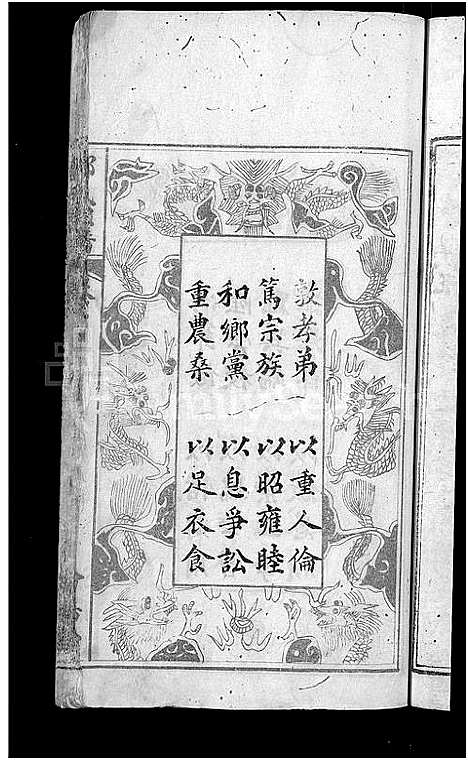 敦孝弟 以重人倫
篤宗族 以昭雍睦
和鄉黨 以息爭訟
重農桑 以足衣食